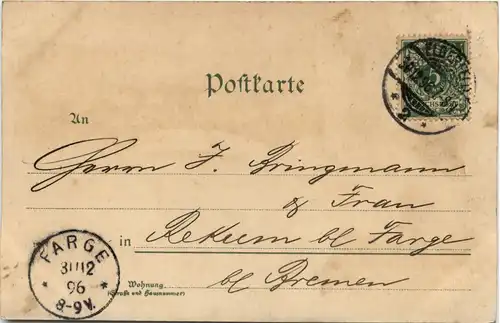 Postkarte
An
Herrn F. Bringmann
& Frau
in Rekum bl Farge
Wohnung
(Straße und Hausnummer)
bl Bremen
FARGE
31/12
96
8-9V.
* 2 *